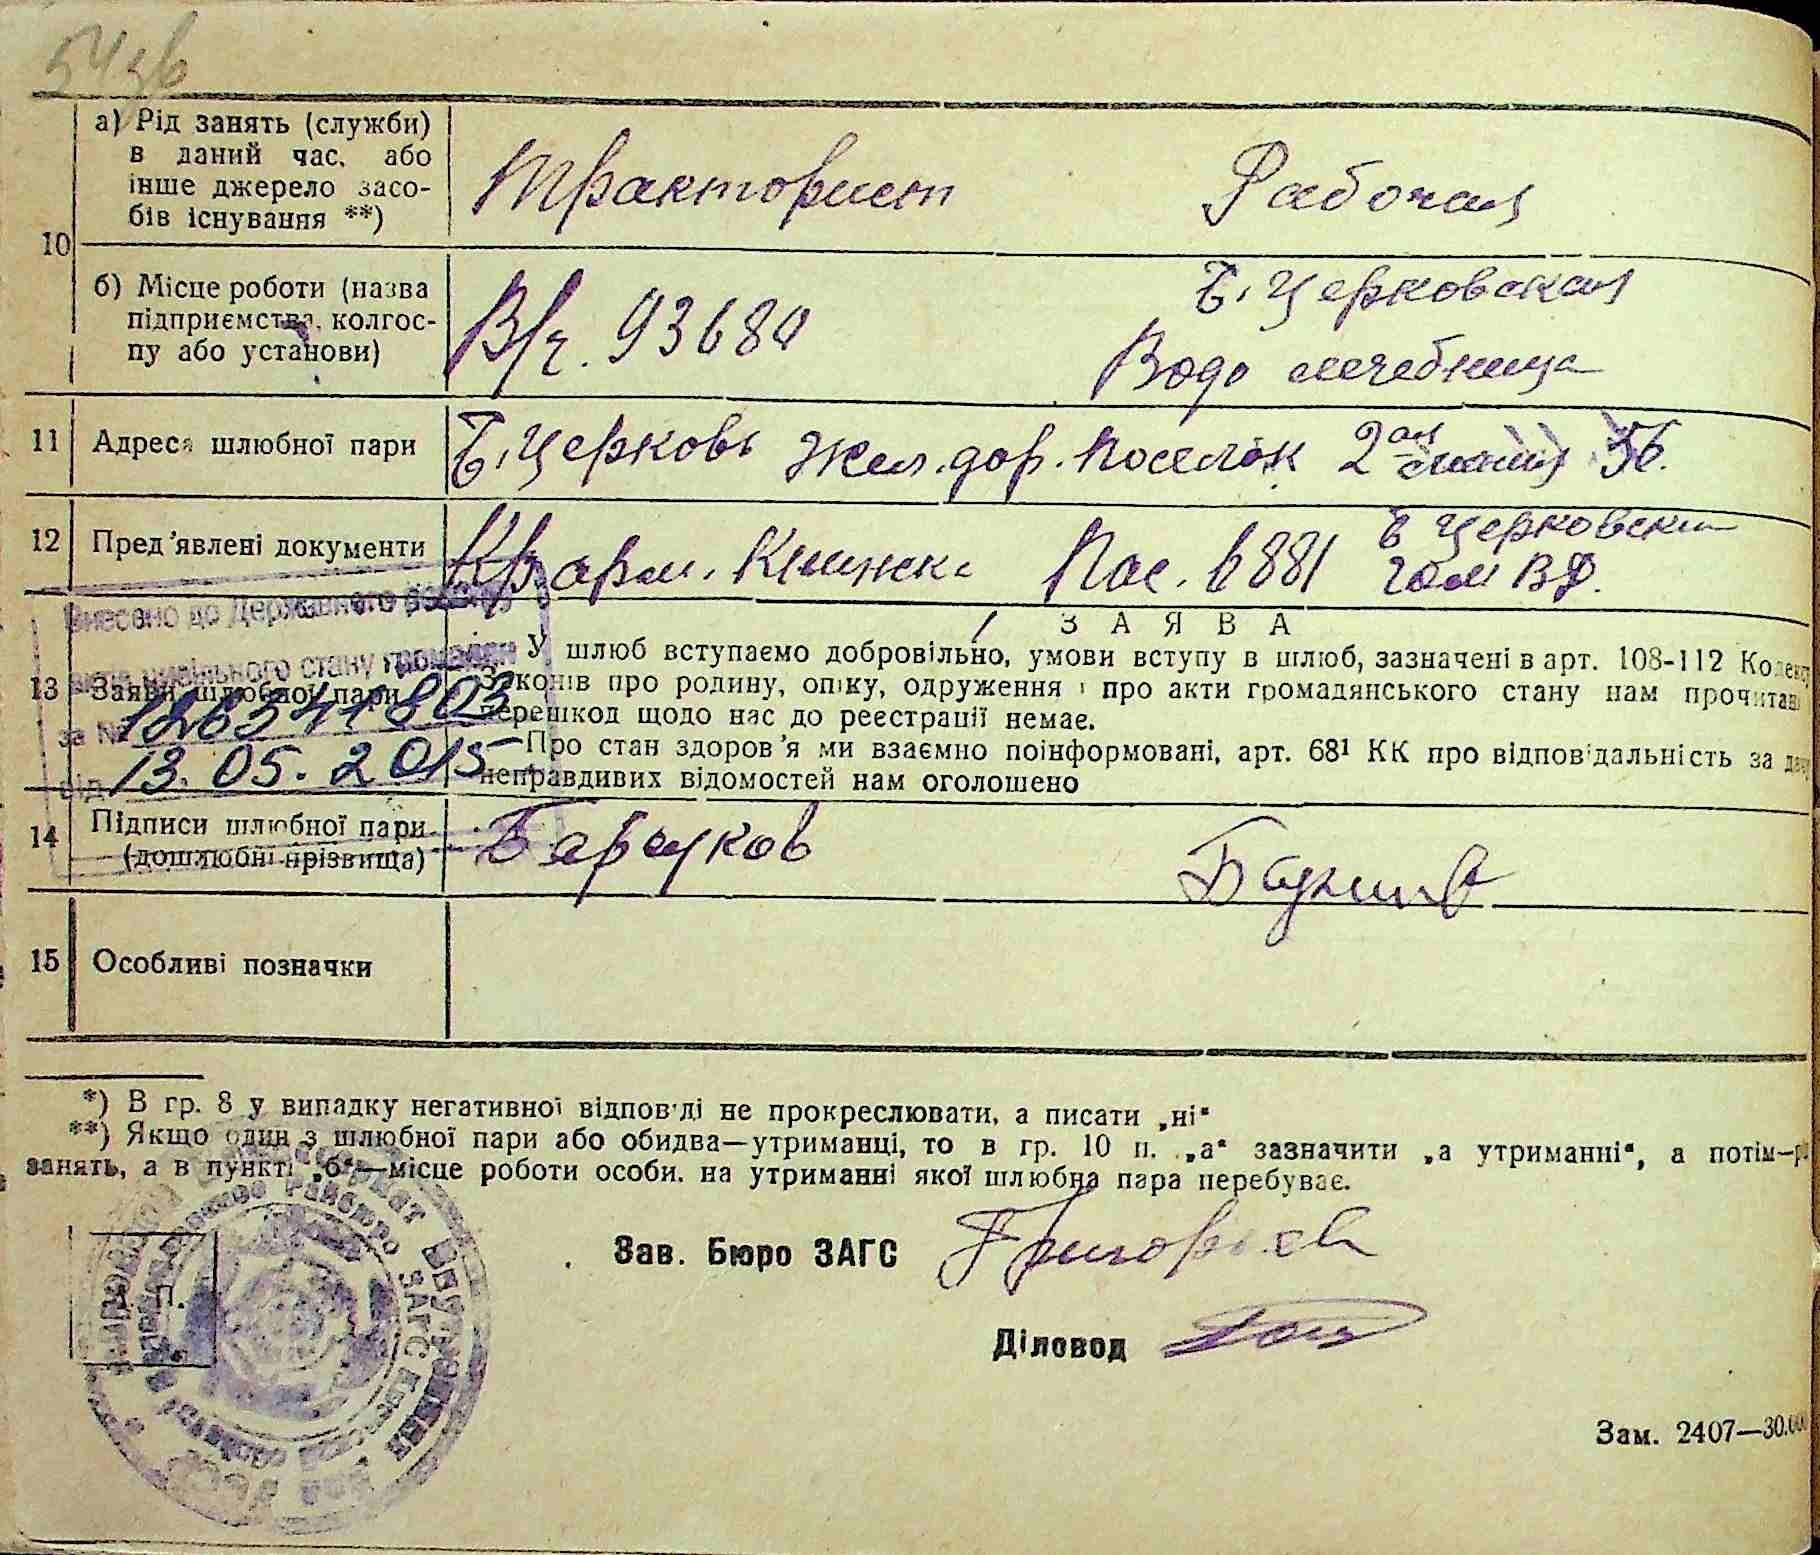 а) Рід занять (служби)
в даний час, або
інше джерело засо-
бів існування **)
Тракторист Рабочая
10
б) Місце роботи (назва
підприємства, колгос-
пу або установи)
В/ч. 93684 Б. Церковская
Водо лечебница
11 Адреса шлюбної пари Б. Церковь Жел. дор. Поселок 2ая линия 56.
12 Пред'явлені документи Кр. арм. Книжка Пас. 6881 Б Церковский
ГомВД.
Внесено до Державного реєстру
актів цивільного стану громадян
за № 1263411803
від 13. 05. 2015
ЗАЯВА
13 Заяви шлюбної пари
У шлюб вступаємо добровільно, умови вступу в шлюб, зазначені в арт. 108-112 Кодекс
Законів про родину, опіку, одруження і про акти громадянського стану нам прочитан
перешкод щодо нас до реєстрації немає.
Про стан здоров'я ми взаємно поінформовані, арт. 68¹ КК про відповідальність за да
неправдивих відомостей нам оголошено
14 Підписи шлюбної пари
(дошлюбні прізвища)
Барсуков
15 Особливі позначки
*) В гр. 8 у випадку негативної відповіді не прокреслювати, а писати „ні“
**) Якщо один з шлюбної пари або обидва—утриманці, то в гр. 10 п. „а“ зазначити „а утриманні“, а потім—р
занять, а в пункті „б“—місце роботи особи, на утриманні якої шлюбна пара перебуває.
Зав. Бюро ЗАГС
Діловод
Зам. 2407—30.000